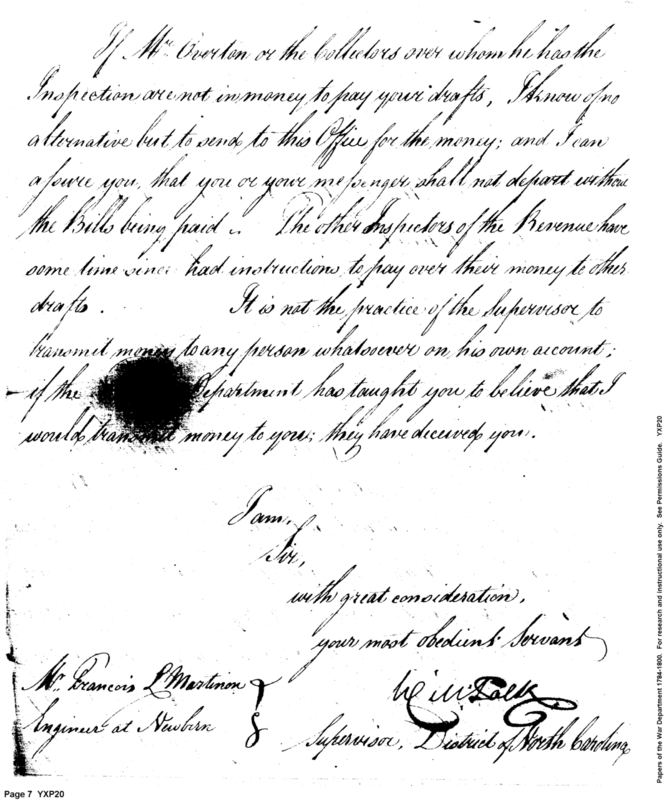 If Mr. Overton or the Collectors over whom he has the
Inspection are not in money, to pay your drafts, I know of no
alternative but to send to this Office for the money; and I can
assure you, that you or your messenger shall not depart without
the Bills being paid. The other Inspectors of the Revenue have
some time since had instructions to pay over their money to other
drafts. It is not the practice of the Supervisor to
transmit money to any person whatsoever on his own account;
if the Department has taught you to believe that I
would transmit money to you; they have deceived you.
I am,
Sir,
with great consideration,
your most obedient Servant
Mr. Francois L Martinon
Engineer at Newbern
Will Polk
Supervisor, District of North Carolina
Page 7 YXP20
Papers of the War Department 1784-1800. For research and instructional use only. See Permissions Guide. YXP20